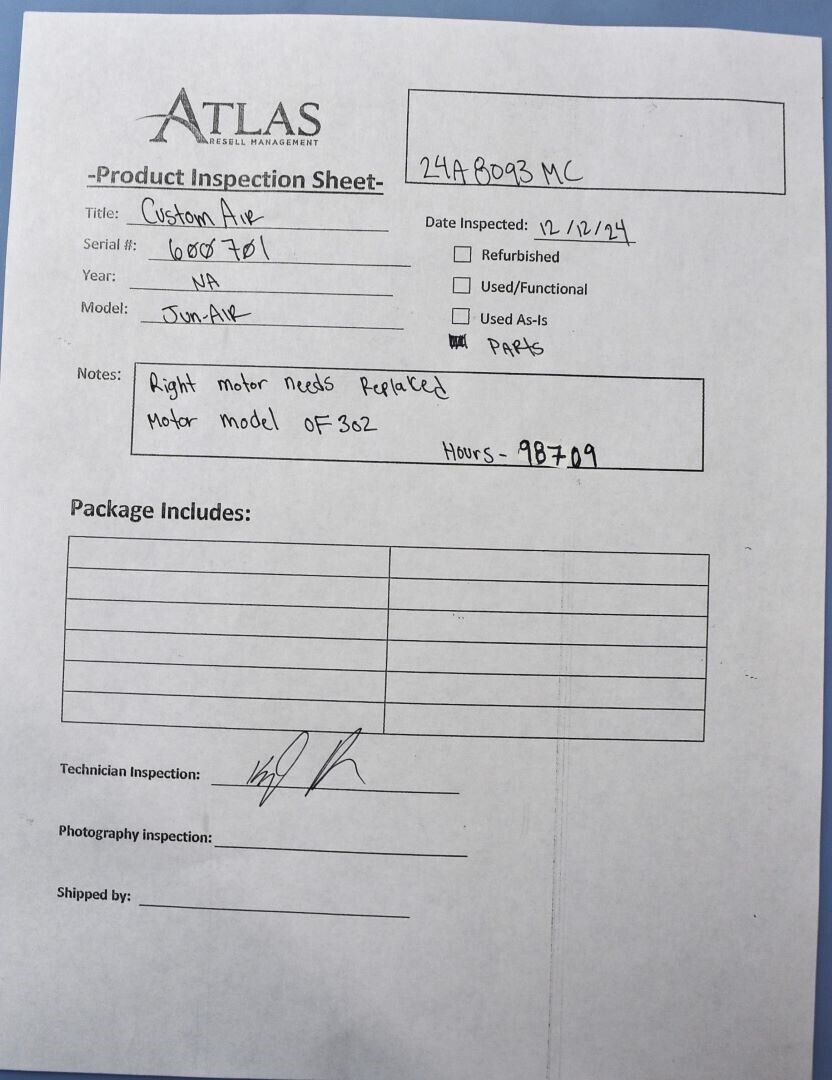 ATLAS
RESELL MANAGEMENT
24A8093 MC
-Product Inspection Sheet-
Title: Custom Air
Date Inspected: 12/12/24
Serial #: 600701
Refurbished
Year: NA
Used/Functional
Model: Jun-AIR
Used As-Is
PARts
Notes: Right motor needs Replaced
Motor model OF302
Hours - 98709
Package Includes:
Technician Inspection:
Photography inspection:
Shipped by: